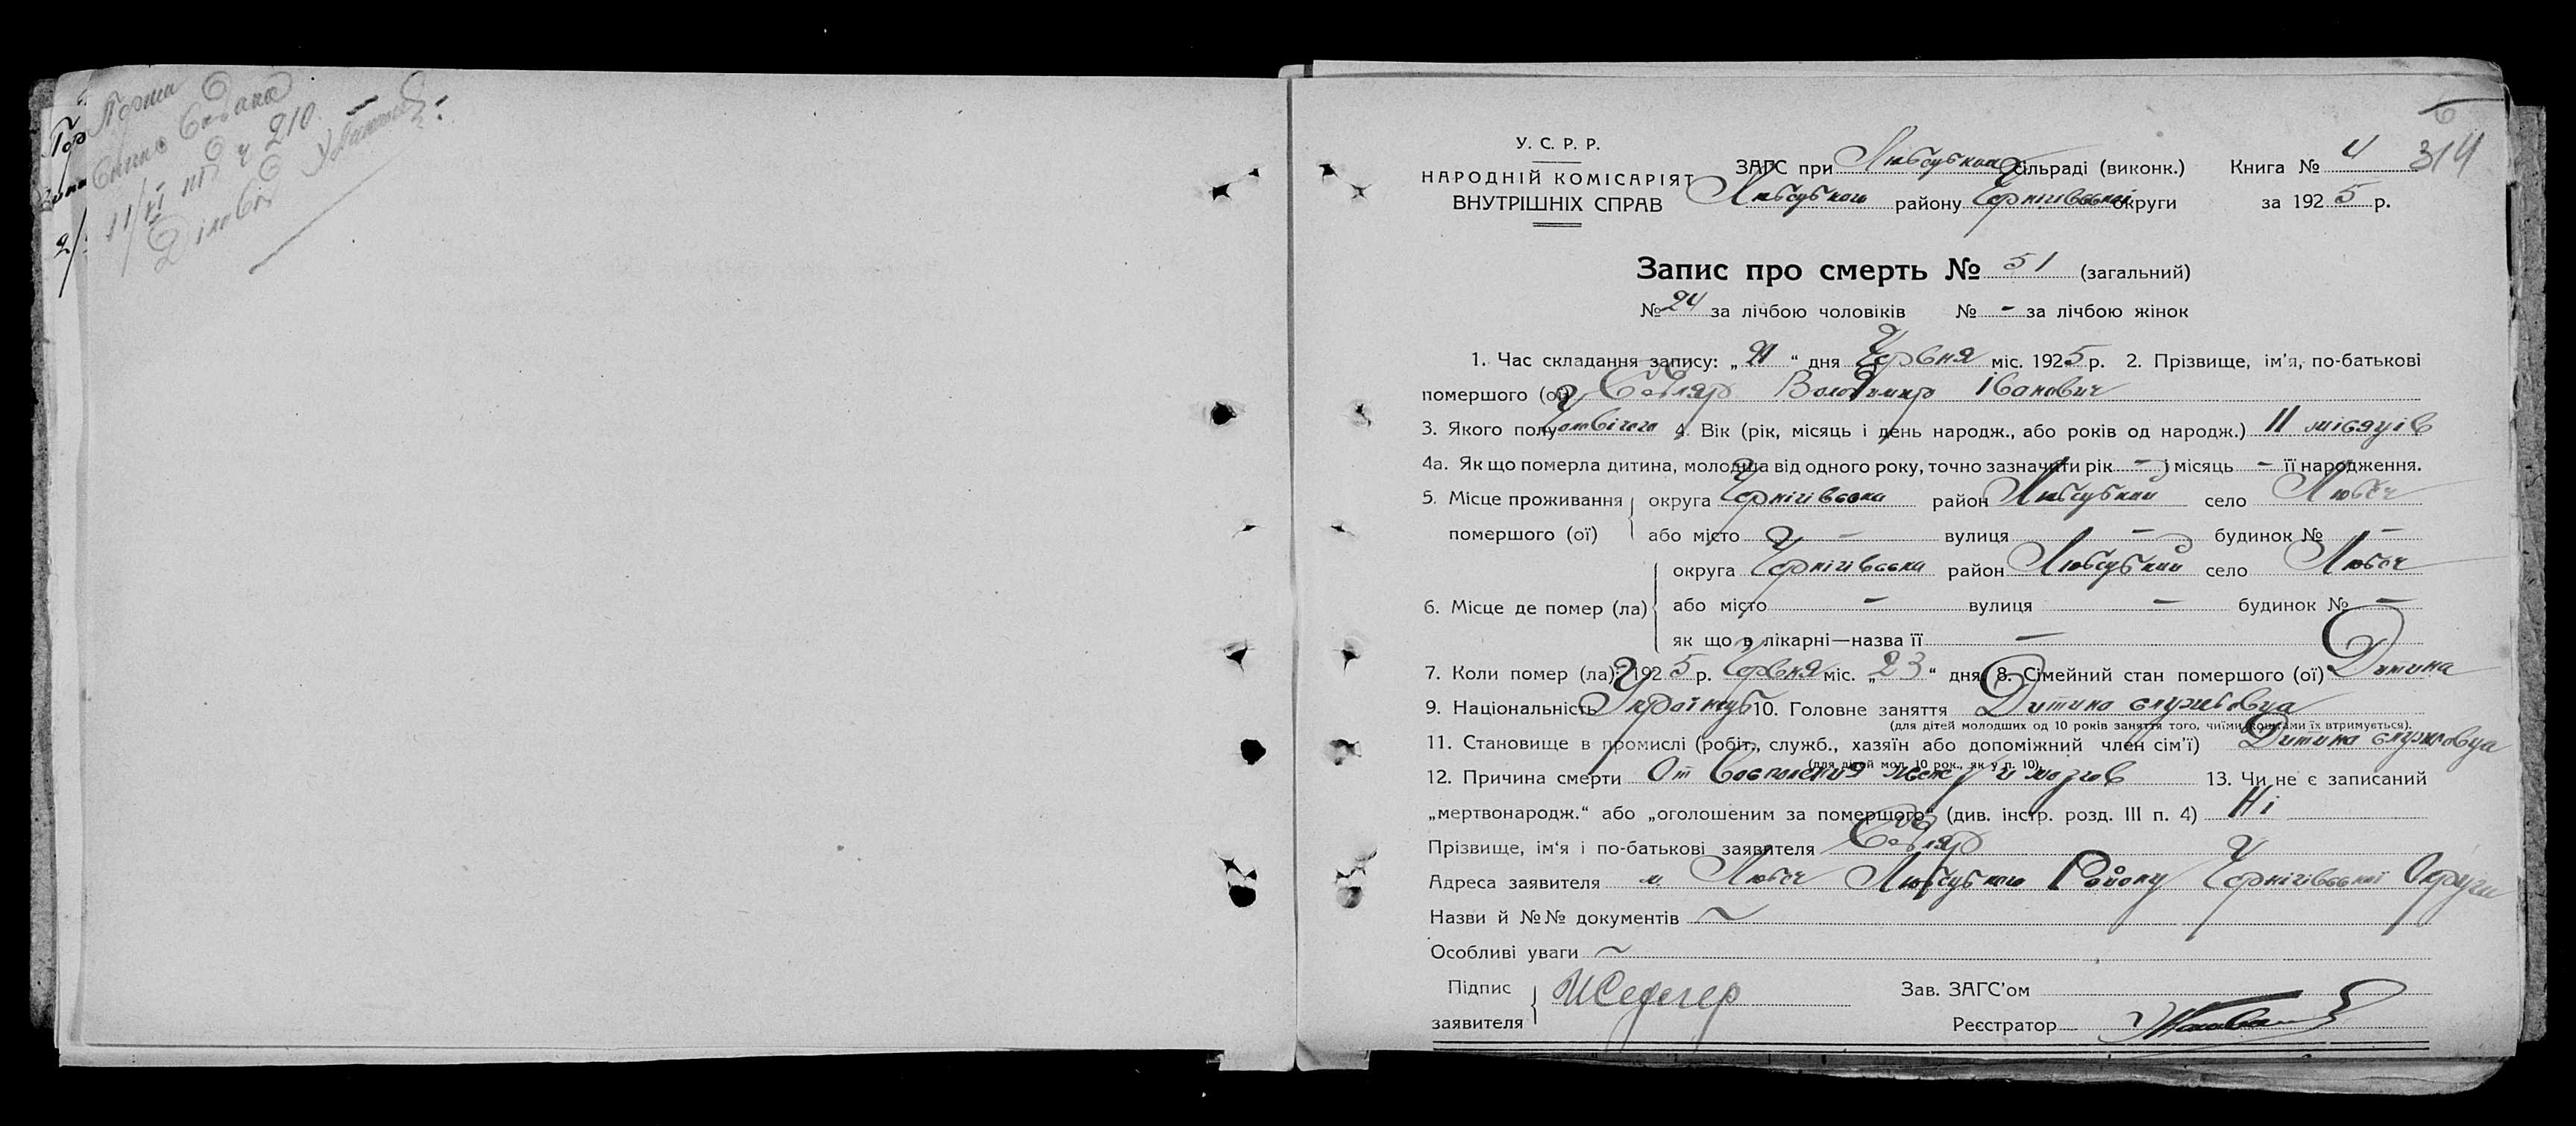 Форма
11/VI
ч 210
6
314
У. С. Р. Р.
НАРОДНІЙ КОМІСАРІЯТ
ВНУТРІШНІХ СПРАВ
ЗАГС при Любецькій сільраді (виконк.) Книга № 4
Любецького району Чернігівської округи за 1925 р.
Запис про смерть № 51 (загальний)
№ 24 за лічбою чоловіків № - за лічбою жінок
1. Час складання запису: „ “ дня Червня міс. 1925 р. 2. Прізвище, ім'я, по-батькові
помершого (ої) Володимир Іванович
3. Якого полу Чоловічого 4. Вік (рік, місяць і день народж., або років од народж.) 11 місяців
4а. Як що померла дитина, молодша від одного року, точно зазначити рік - і місяць - її народження.
5. Місце проживання округа Чернігівська район Любецький село Любеч
помершого (ої) або місто - вулиця - будинок № -
округа Чернігівська район Любецький село Любеч
6. Місце де помер (ла) або місто - вулиця - будинок № -
як що в лікарні—назва її -
7. Коли помер (ла): 1925 р. Червня міс. „23“ дня 8. Сімейний стан помершого (ої) Дитина
9. Національність Українець 10. Головне заняття Дитина службовця
(для дітей молодших од 10 років заняття того, чиїми коштами їх втримується).
11. Становище в промислі (робіт., служб., хазяїн або допоміжний член сім'ї) Дитина службовця
(для дітей мол. 10 рок., як у п. 10).
12. Причина смерти От воспаления мозгов 13. Чи не є записаний
„мертвонародж.“ або „оголошеним за помершого“ (див. інстр. розд. III п. 4) Ні
Прізвище, ім'я і по-батькові заявителя
Адреса заявителя м. Любеч Любецького Району Чернігівської Округи
Назви й №№ документів ~
Особливі уваги ~
Підпис
заявителя
Зав. ЗАГС'ом
Реєстратор